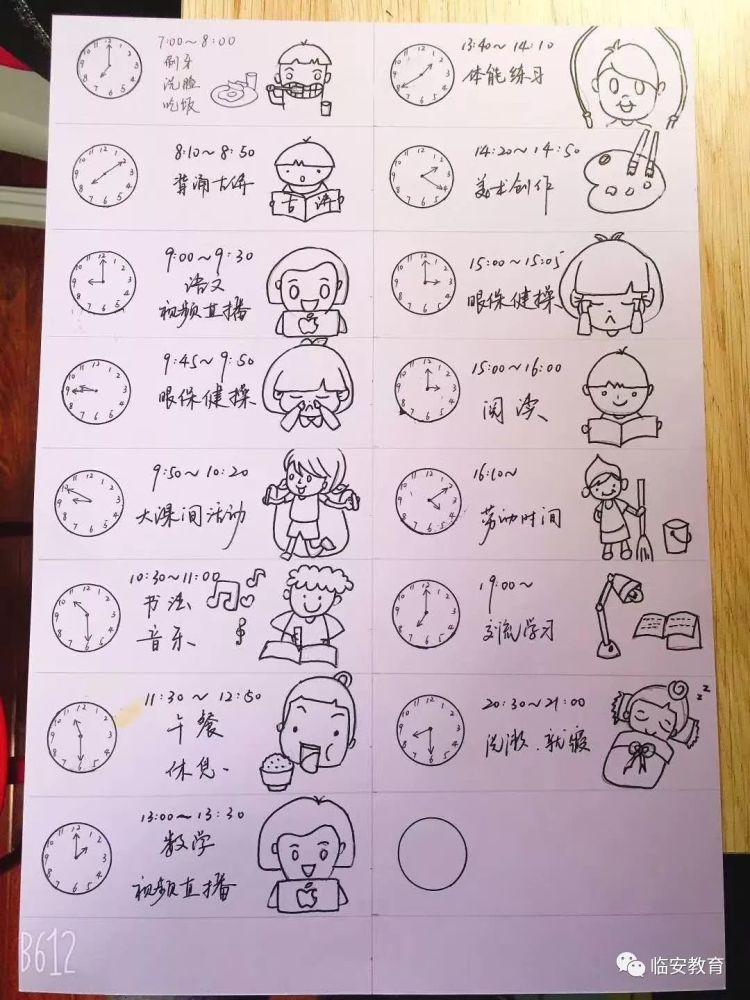 7:00～8:00
刷牙
洗脸
吃饭
8:10～8:50
背诵古诗
古诗
9:00～9:30
语文
视频直播
9:45～9:50
眼保健操
9:50～10:20
大课间活动
10:30～11:00
书法
音乐
11:30～12:50
午餐
休息
13:00～13:30
数学
视频直播
13:40～14:10
体能练习
14:20～14:50
美术创作
15:00～15:05
眼保健操
15:00～16:00
阅读
16:10～
劳动时间
19:00～
交流学习
20:30～21:00
洗漱、就寝
zz
B612
临安教育